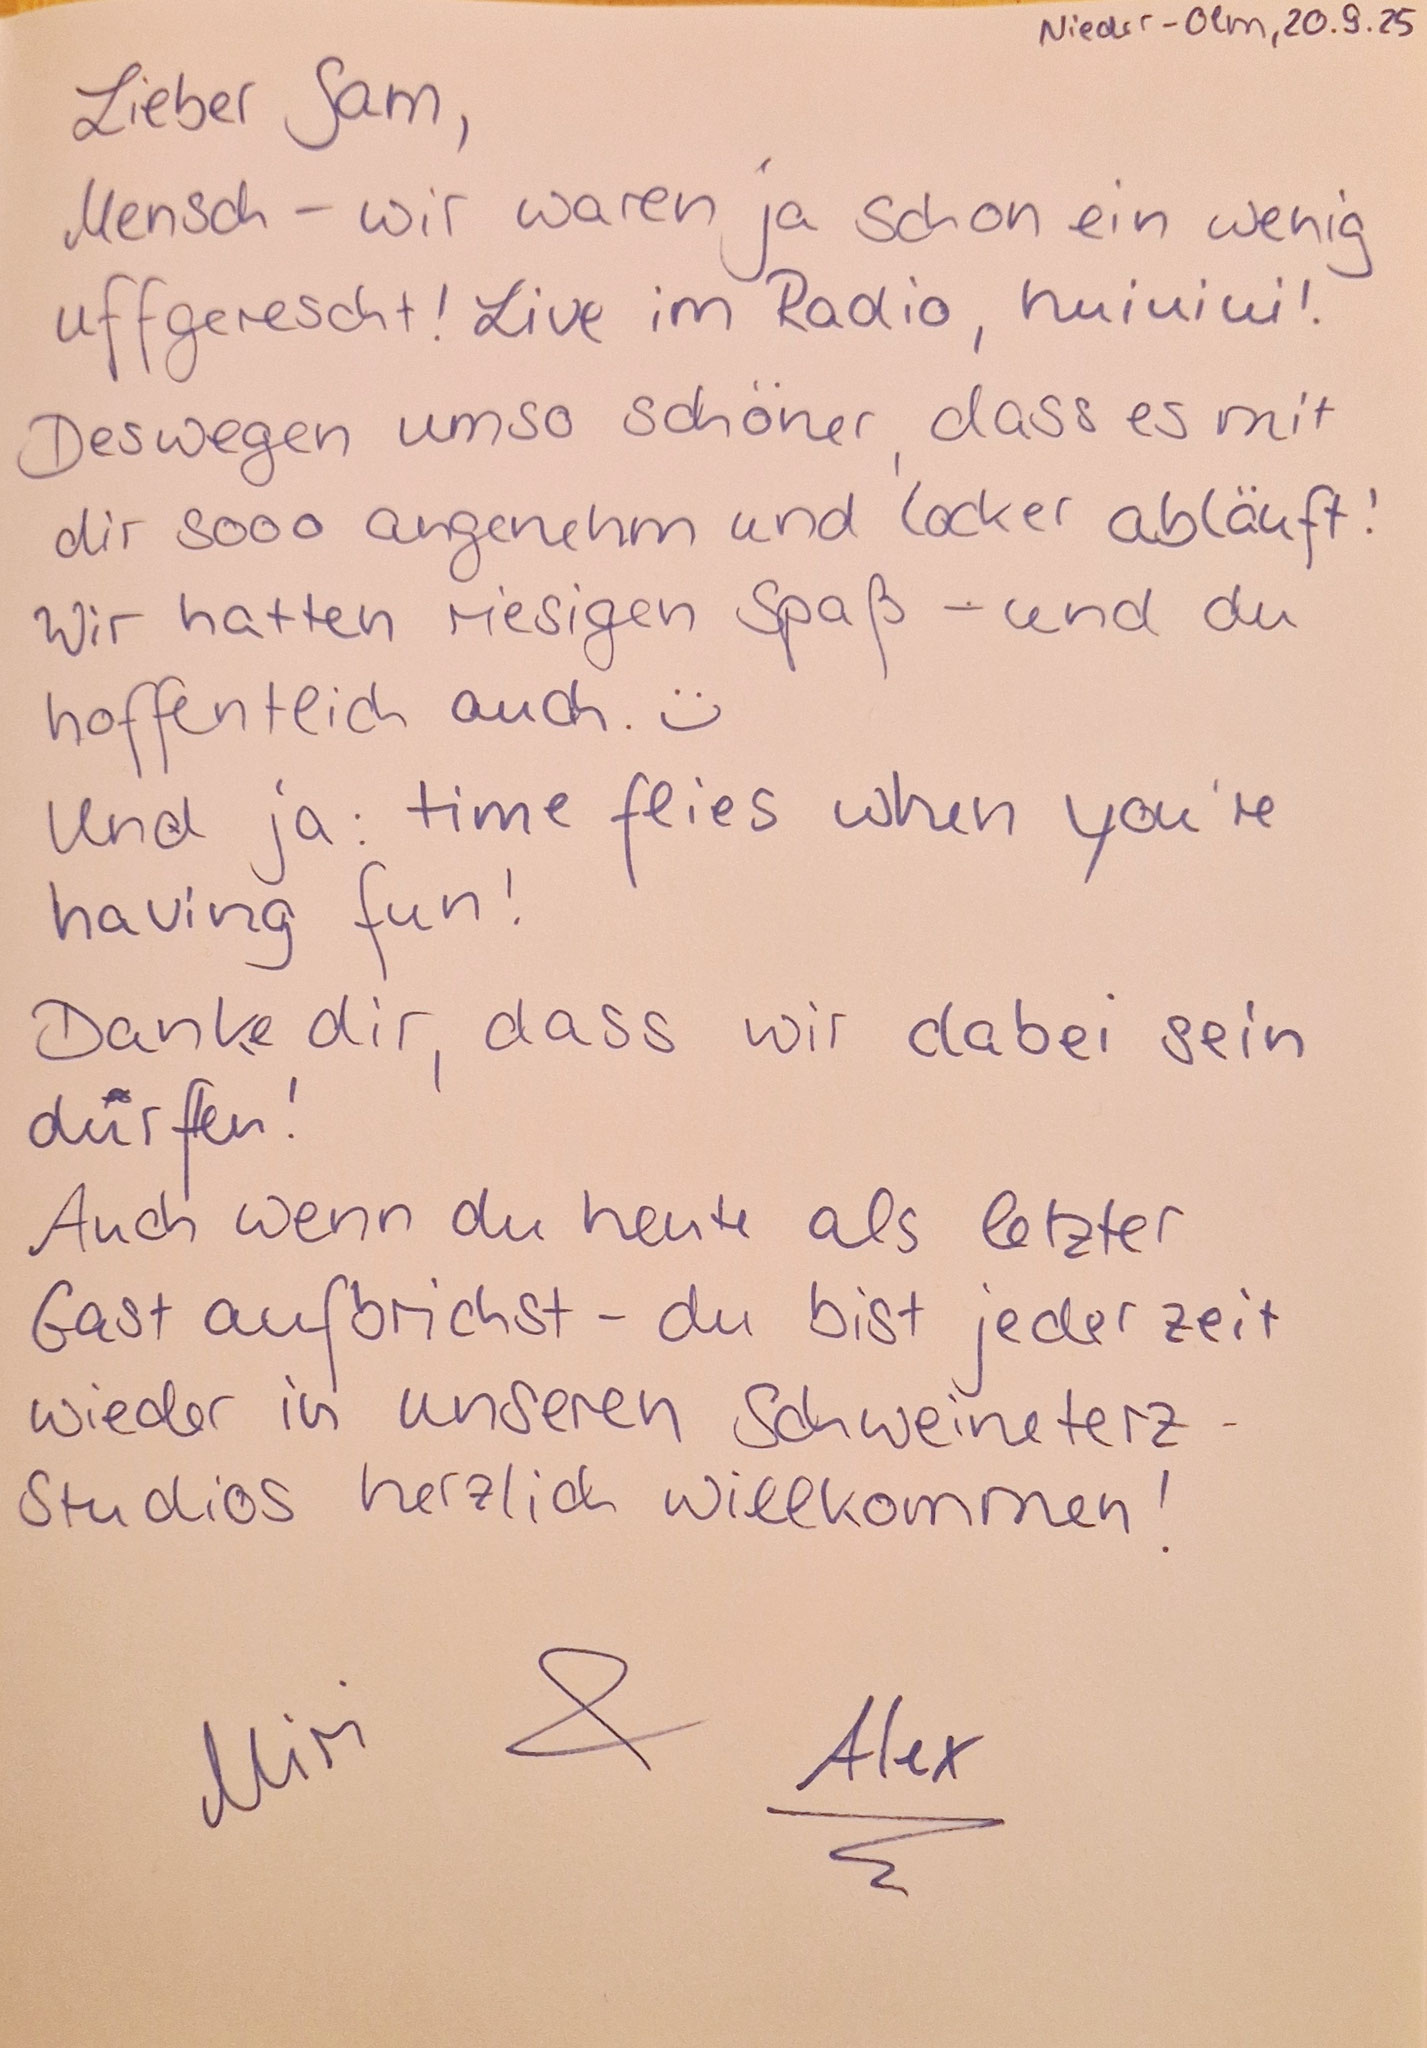 Nieder-Olm, 20.9.25
Lieber Sam,
Mensch - wir waren ja schon ein wenig
uffgerescht! Live im Radio, huiuiui!
Deswegen umso schöner, dass es mit
dir sooo angenehm und locker abläuft!
Wir hatten riesigen Spaß - und du
hoffentlich auch. :)
Und ja: time flies when you're
having fun!
Danke dir, dass wir dabei sein
dürfen!
Auch wenn du heute als letzter
Gast aufbrichst - du bist jederzeit
wieder in unseren Schweineterz-
Studios herzlich willkommen!
Miri & Alex